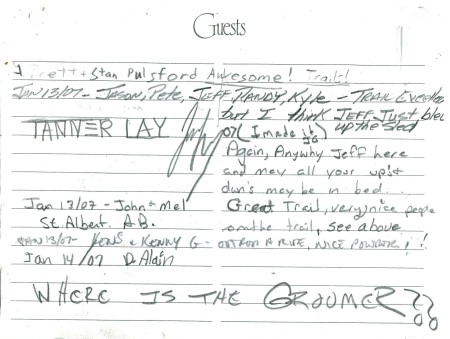 Guests
Brett + Stan Pulsford Awesome! Trails!
JAN 13/07 - JASON, Pete, JEFF, RANDY, Kyle - TRAIL
but I think JEFF Just
up the sled
TANNER LAY
07 (I made it)
Again, Anywhy Jeff here
and may all your up's &
dwn's may be in bed...
Jan 13/07 - John + Mel
Great Trail, very nice people
St. Albert. A.B.
on the trail, see above
JAN 13/07 - KENS & KENNY G - OUT FOR A RIDE, NICE POWDER!!
Jan 14/07 D. Alain
WHERE IS THE GROOMER??